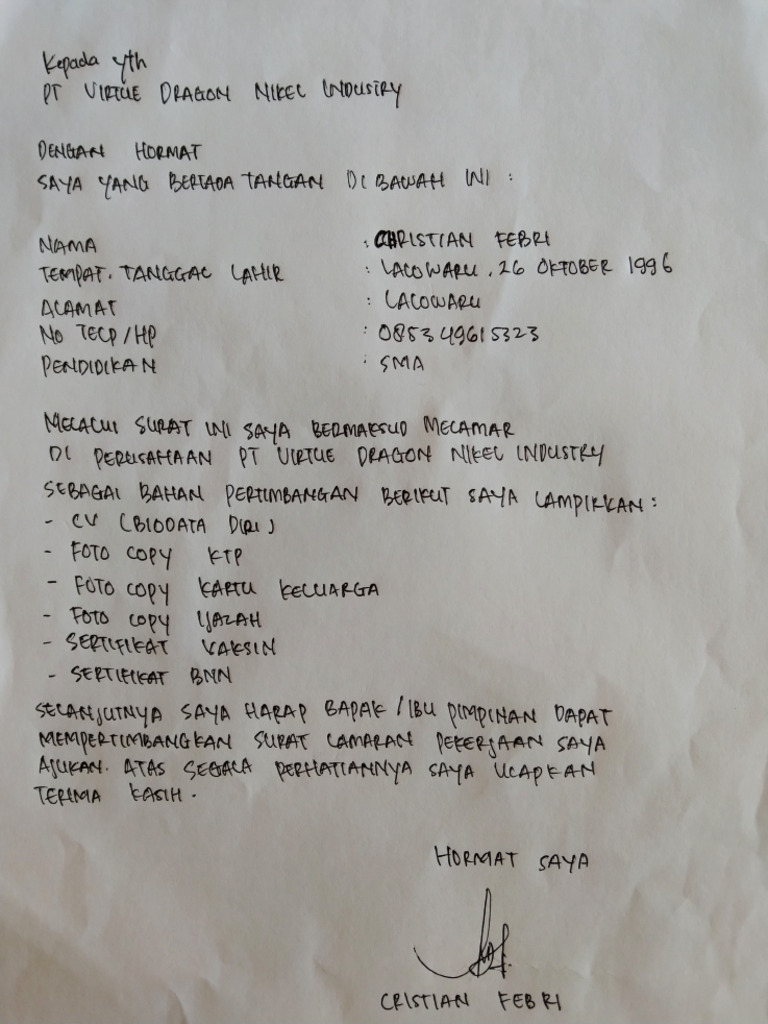 Kepada yth
PT VIRTUE DRAGON NIKEL INDUSTRY
DENGAN HORMAT
SAYA YANG BERTADA TANGAN DI BAWAH INI :
NAMA : CHRISTIAN FEBRI
TEMPAT. TANGGAL LAHIR : LALOWARU . 26 OKTOBER 1996
ALAMAT : LALOWARU
No TELP/HP : 085349615323
PENDIDIKAN : SMA
MELALUI SURAT INI SAYA BERMAKSUD MELAMAR
DI PERUSAHAAN PT VIRTUE DRAGON NIKEL INDUSTRY
SEBAGAI BAHAN PERTIMBANGAN BERIKUT SAYA LAMPIRKAN :
- CV (BIODATA DIRI)
- FOTO COPY KTP
- FOTO COPY KARTU KELUARGA
- FOTO COPY IJAZAH
- SERTIFIKAT VAKSIN
- SERTIFIKAT BNN
SELANJUTNYA SAYA HARAP BAPAK / IBU PIMPINAN DAPAT
MEMPERTIMBANGKAN SURAT LAMARAN PEKERJAAN SAYA
AJUKAN. ATAS SEGALA PERHATIANNYA SAYA UCAPKAN
TERIMA KASIH.
HORMAT SAYA
CRISTIAN FEBRI